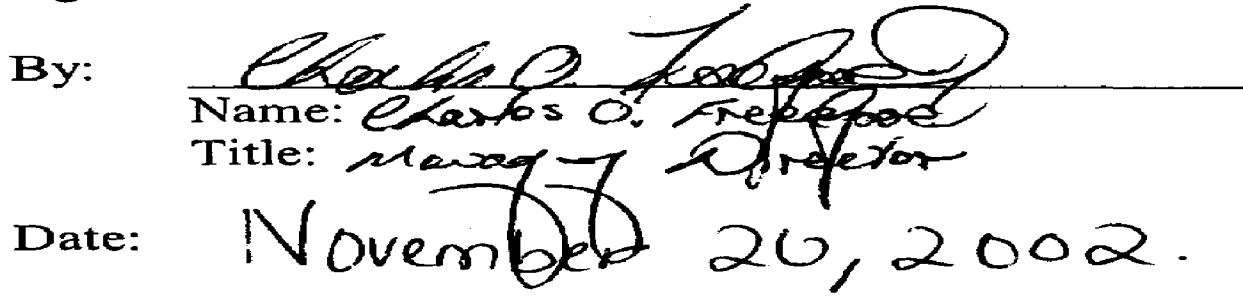 By: Charles O.
Name: Charles O.
Title: Managing Director
Date: November 20, 2002.